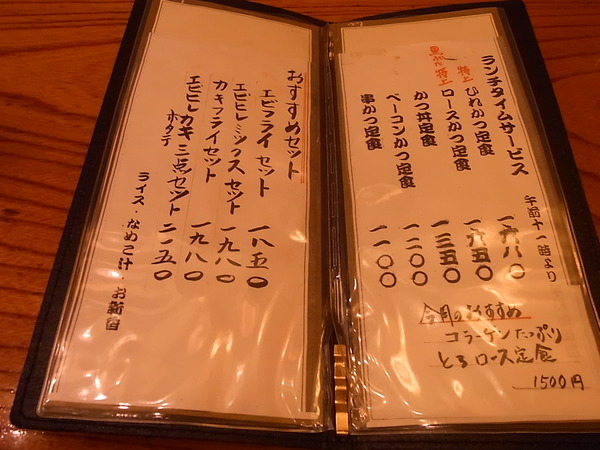 ランチタイムサービス 午前十一時より
特上 ひれかつ定食 一六八〇
黒ぶた 特上 ロースかつ定食 一六五〇
かつ丼定食 一三五〇
ベーコンかつ定食 一二〇〇
串かつ定食 一一〇〇
今月のおすすめ
コラーゲンたっぷり
とろロース定食
1500円
おすすめセット
エビフライセット 一八五〇
エビヒレミックスセット 一九八〇
カキフライセット 一九八〇
エビヒレカキ三点セット 二一五〇
ホタテ
ライス・なめこ汁・お新香